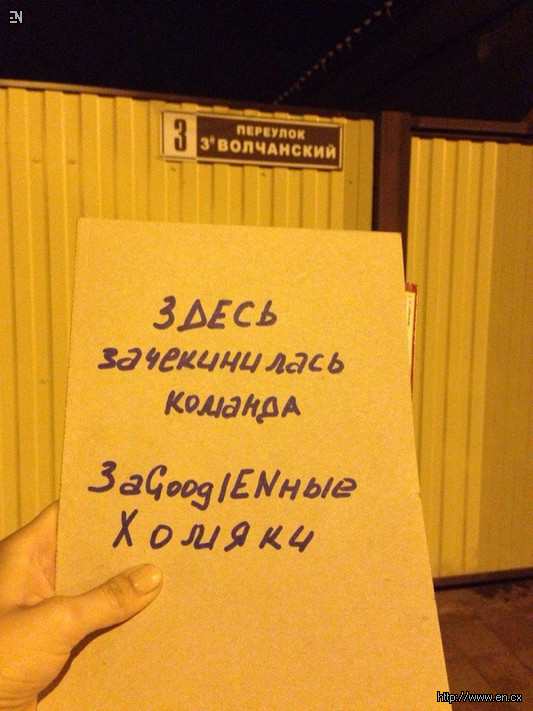 EN
3
ПЕРЕУЛОК
3й ВОЛЧАНСКИЙ
ЗДЕСЬ
зачекинилась
команда
ЗаGooglENные
Хомяки
http://www.en.cx